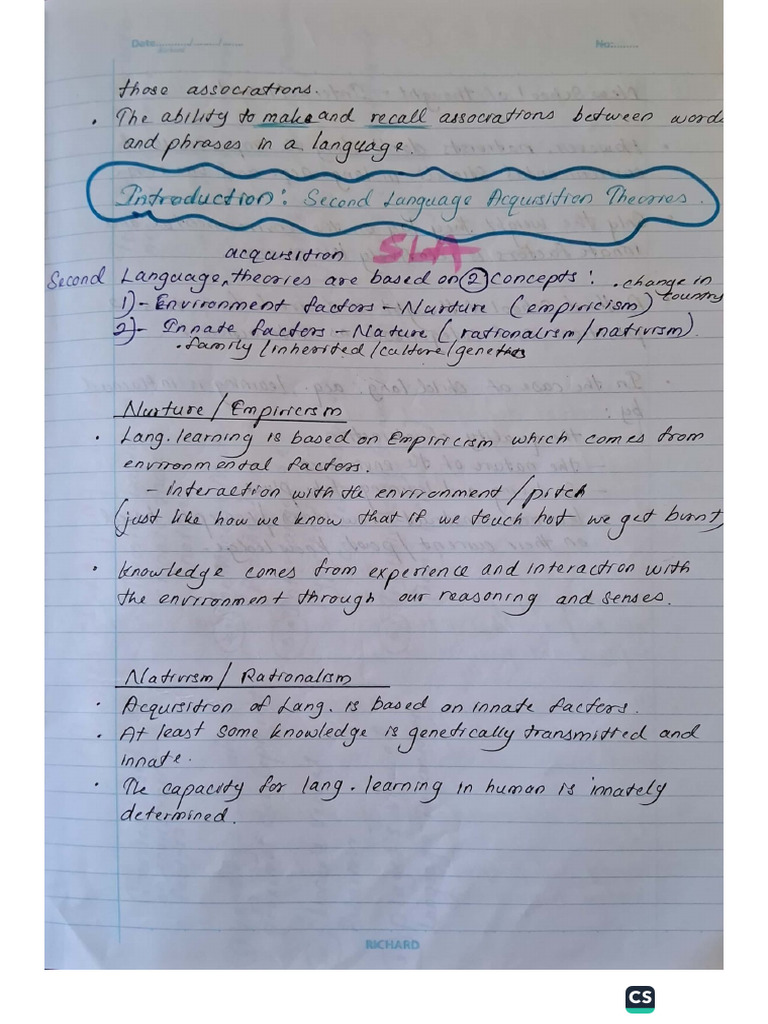 Date:......../......../........
No:........
those associations.
• The ability to make and recall associations between words
and phrases in a language.
Introduction: Second Language Acquisition Theories.
acquisition SLA
Second Language, theories are based on 2 concepts: • change in
country
1)- Environment factors - Nurture (empiricism)
2)- Innate factors - Nature (rationalism/nativism).
• family/inherited/culture/genetics
Nurture/Empiricism
• Lang. learning is based on Empiricism which comes from
environmental factors.
- Interaction with the environment/pitch
(just like how we know that if we touch hot we get burnt)
• knowledge comes from experience and interaction with
the environment through our reasoning and senses.
Nativism/Rationalism
• Acquisition of Lang. is based on innate factors.
• At least some knowledge is genetically transmitted and
innate.
• The capacity for lang. learning in human is innately
determined.
RICHARD
CS